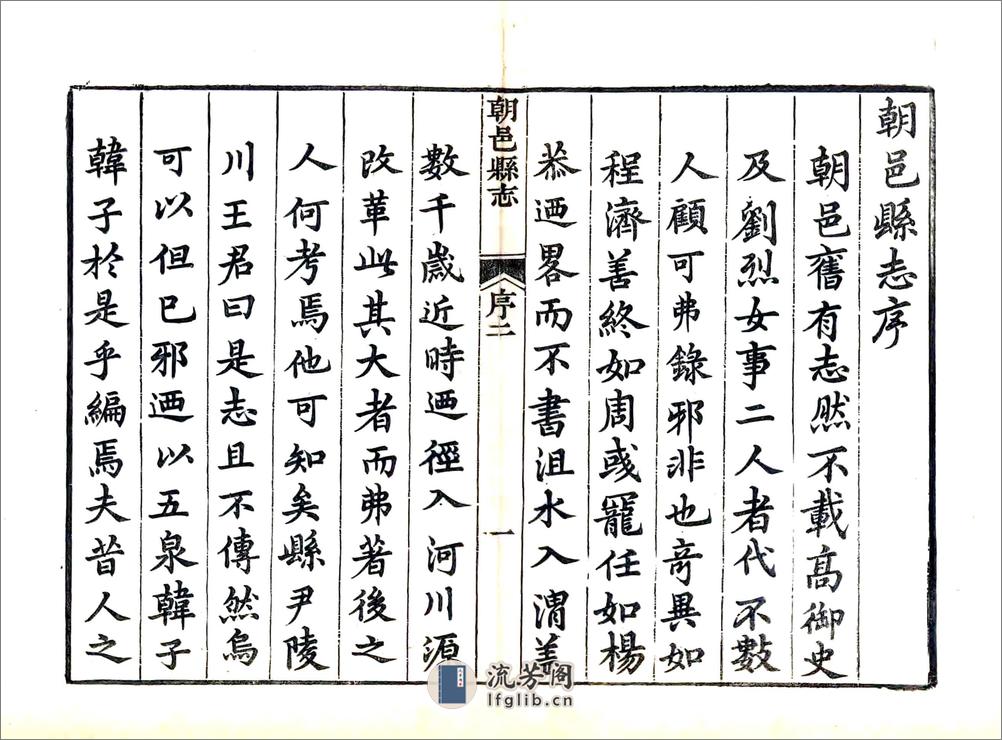 朝邑縣志序
朝邑舊有志然不載高御史
及劉烈女事二人者代不數
人顧可弗錄邪非也竒異如
程濟善終如周彧寵任如楊
恭迺畧而不書沮水入渭葢
朝邑縣志
序二
一
數千歲近時迺徑入河川源
改革此其大者而弗著後之
人何考焉他可知矣縣尹陵
川王君曰是志且不傳然烏
可以但已邪迺以五泉韓子
韓子於是乎編焉夫昔人之
流芳阁
lfglib.cn